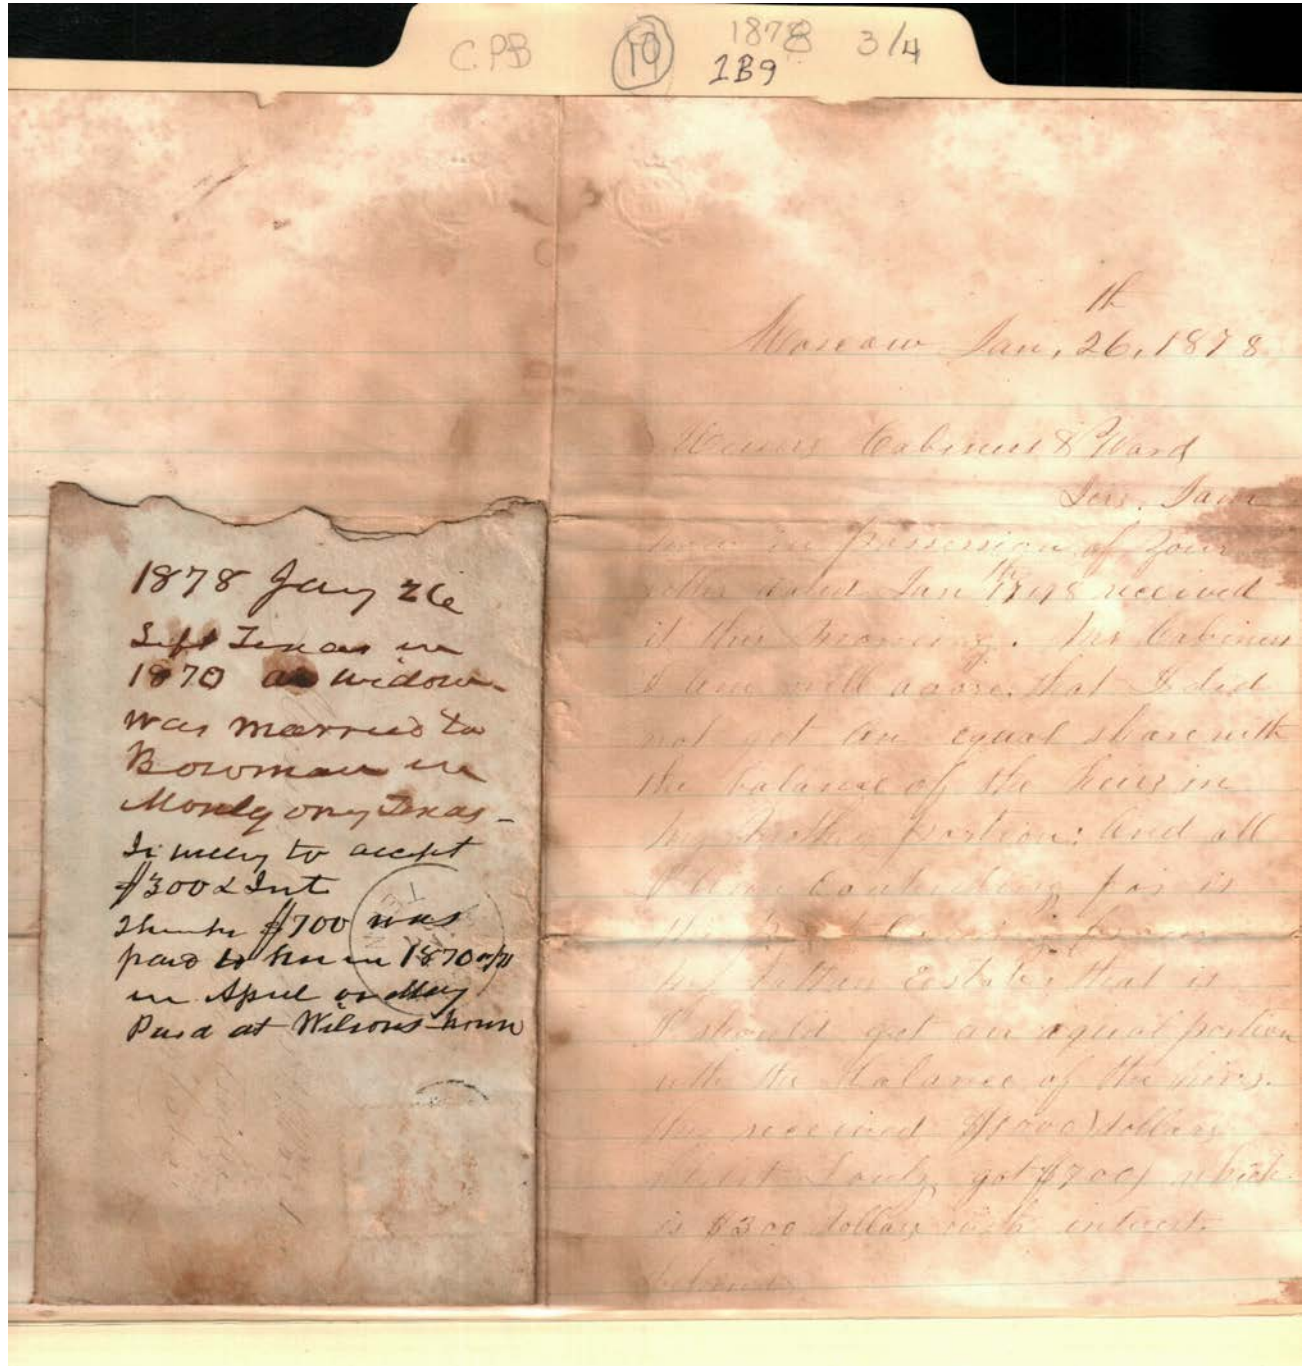 C.P.B 19 1878 3/4
2B9
1878 Jany 26
Left Texas in
1870 a widow
was married to
Bowman in
Montgomery Texas -
Is willing to accept
$300 & Int
thinks $700 was
paid to her in 1870 or 71
in April or May
Paid at Wilsons house
th
Moscow Jan, 26, 1878
Cabiness & Ward
Sirs. I am
now in possession of your
letter dated Jan received
it this morning. Mr Cabiness
I am well aware that I did
not get an equal share with
the balance of the heirs in
my portion: and all
I am contending for is
the
my Estate that is
I should get an equal portion
with the balance of the heirs.
they received $(1000) dollars
I only got $(700) which
is $300 dollars with interest